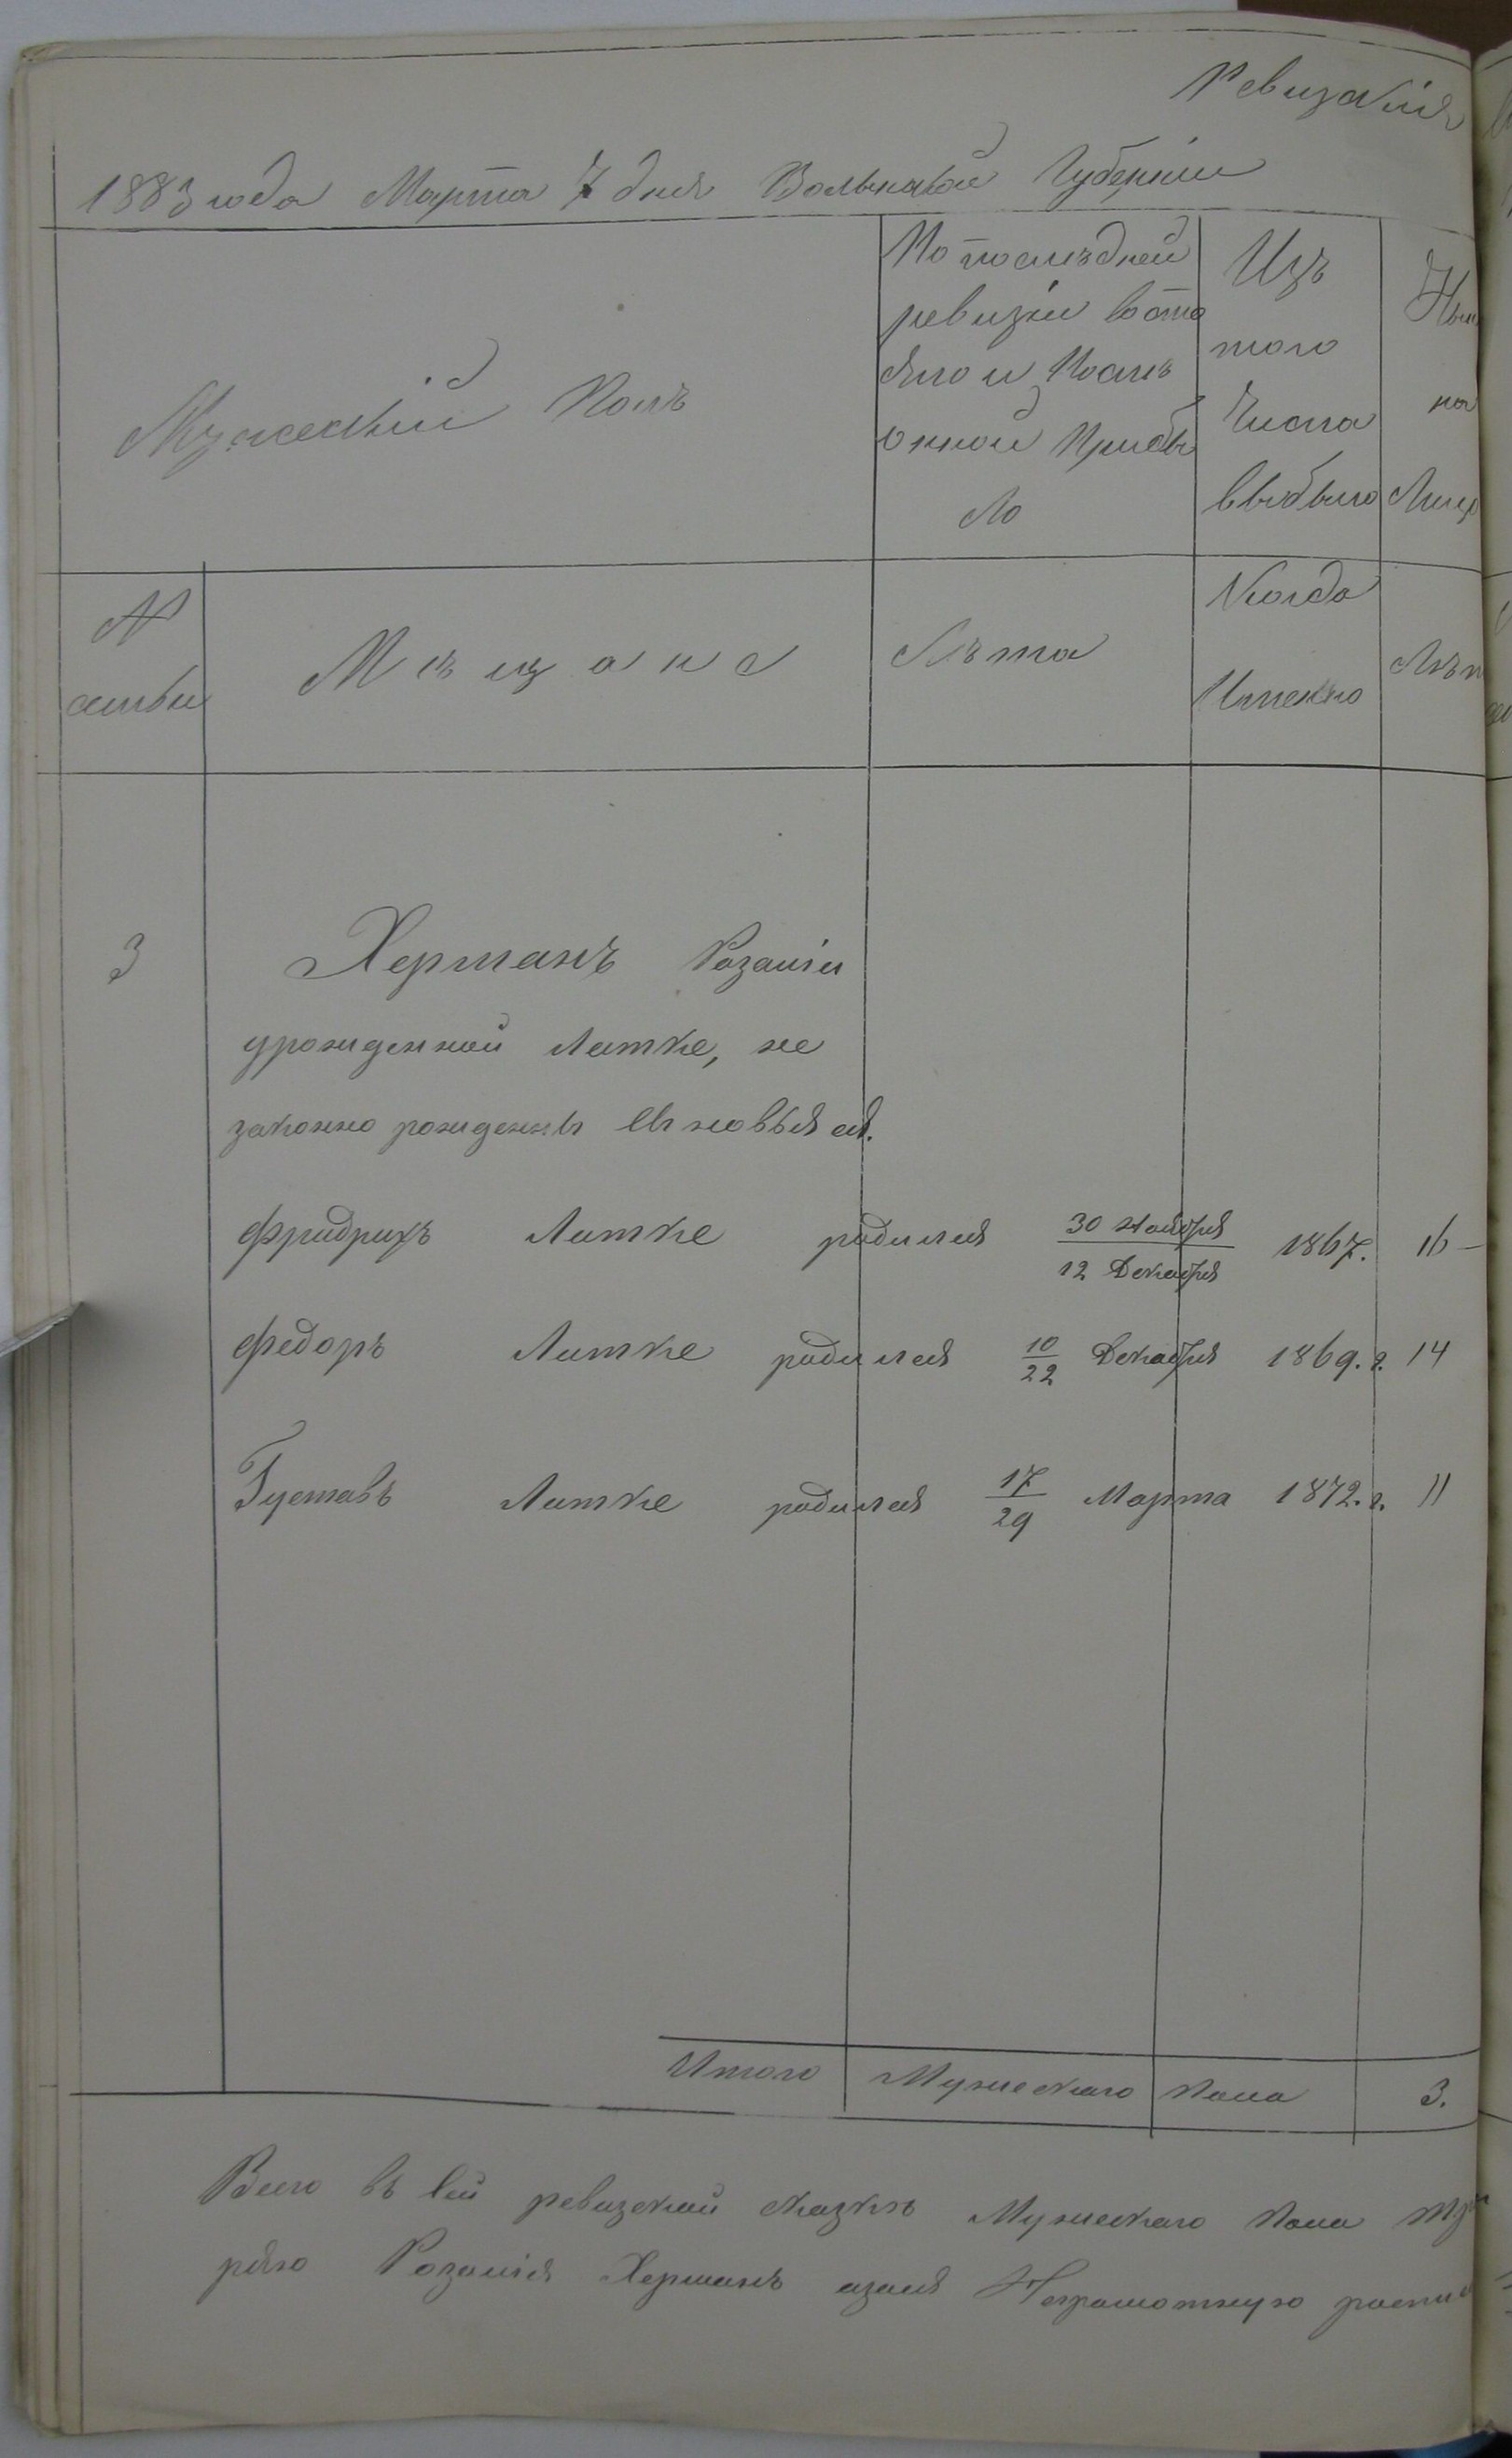 Ревизская
1883 года Марта 7 дня Волынской Губерніи
Мужескій Полъ
По послѣдней
ревизіи состо
яло и Послѣ
онной Прибы
ло
Изъ
того
Числа
выбыло
Ны
на
Лиц
№
семьи
Мѣщане
Лѣта
Когда
Именно
Лѣт
3
Херманъ Розаліи
урожденной Литке, не
законно рожденны Сыновья ея.
Фридрихъ Литке родился 30 Ноября / 12 Декабря 1867. 16 –
Федоръ Литке родился 10/22 Декабря 1869. г. 14
Густавъ Литке родился 17/29 Марта 1872. г. 11
Итого Мужескаго Пола 3.
Всего въ сей ревизской сказкѣ Мужескаго Пола тр
рою Розалія Херманъ азаня Неграмотную распис